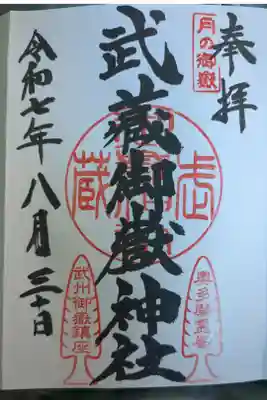 奉拝
月の御嶽
武蔵御嶽神社
武州御嶽鎮座
令和七年八月三十日